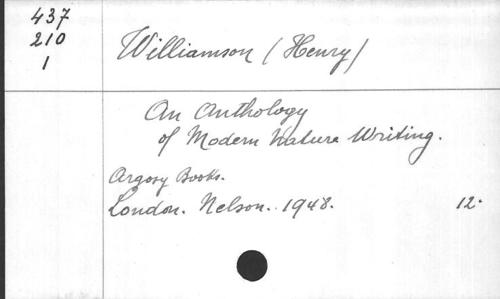 437
210
1
Williamson (Henry)
An Anthology
of Modern Nature Writing.
Argosy Books.
London. Nelson. 1948. 12.